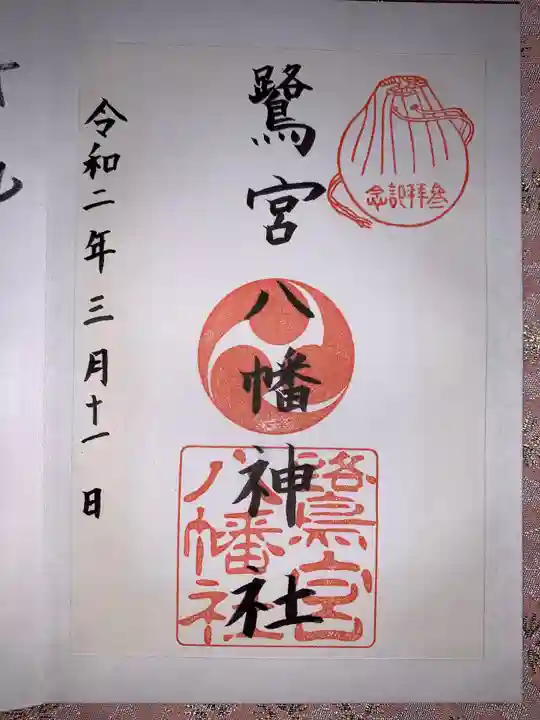 参拝記念
鷺宮八幡神社
鷺宮
八幡社
令和二年三月十一日